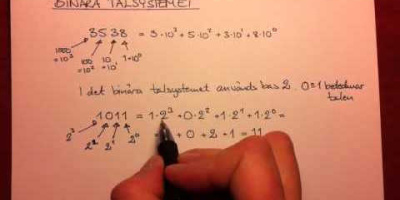 BINÄRA TALSYSTEMET
3538 = 3·10³+5·10²+3·10¹+8·10⁰
1000 100 10 1=10⁰
=10³ =10² =10¹
I det binära talsystemet används bas 2. 0 & 1 betecknar
talen
1011 = 1·2³+0·2²+1·2¹+1·2⁰=
2³ 2² 2¹ 2⁰ + 0 + 2 + 1 = 11